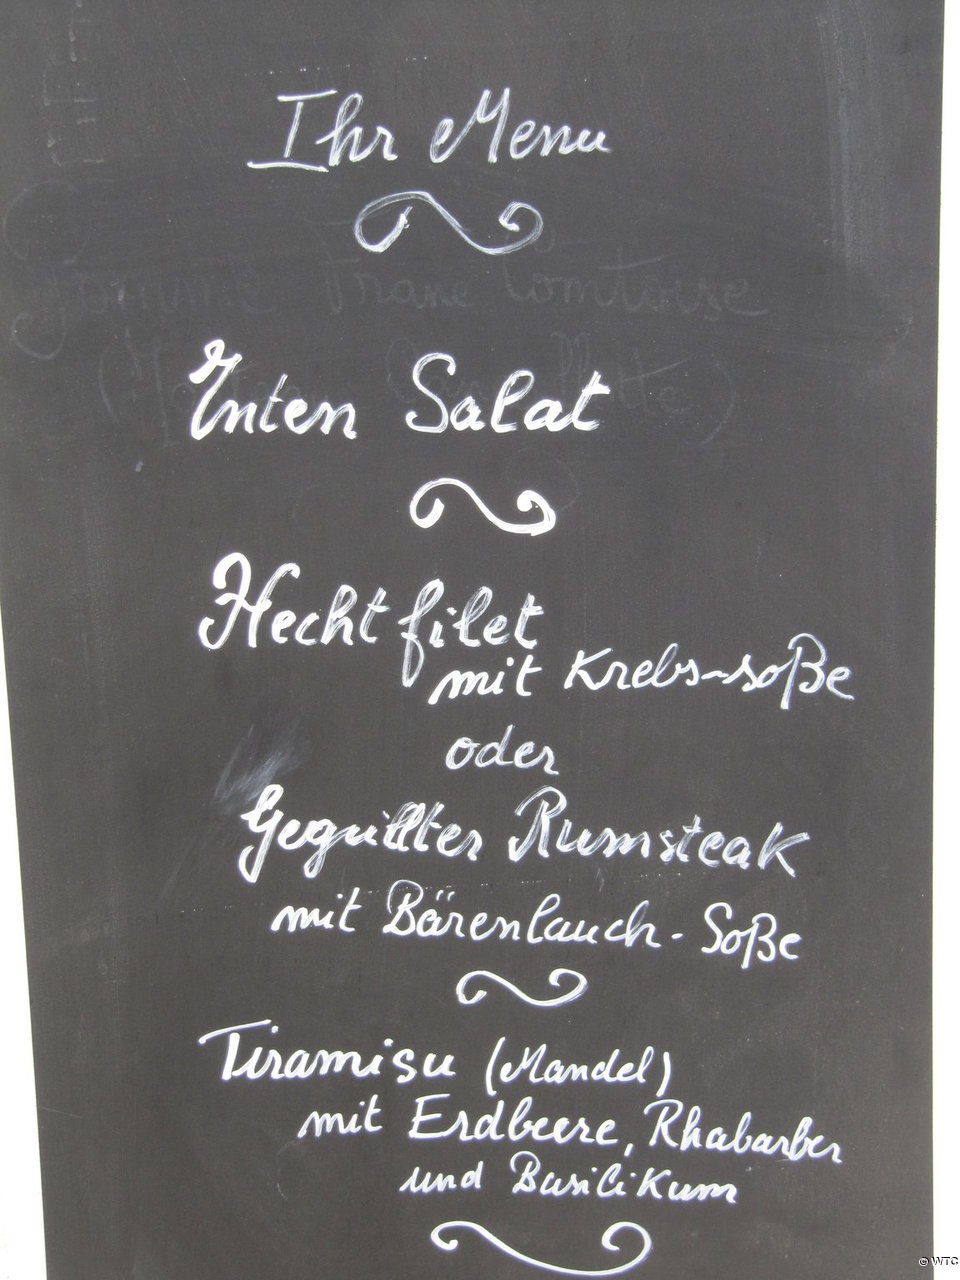 Ihr Menu
Gomme Franc Comtoise
Enten Salat
Hecht filet
mit Krebs-soße
oder
Gegrillter Rumsteak
mit Bärenlauch-Soße
Tiramisu (Mandel)
mit Erdbeere, Rhabarber
und Basilikum
© WTC